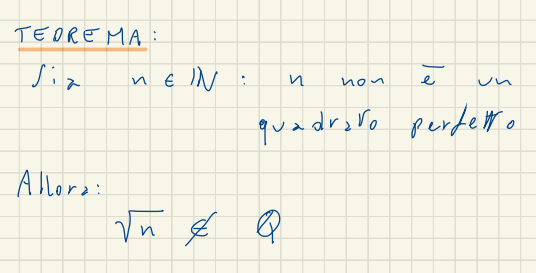 TEOREMA:
Sia n ∈ ℕ : n non è un
quadrato perfetto
Allora:
√n ∉ ℚ